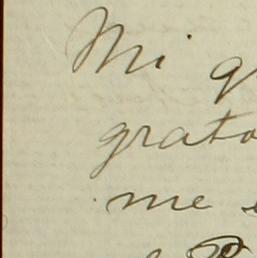 Mi g
grato
me